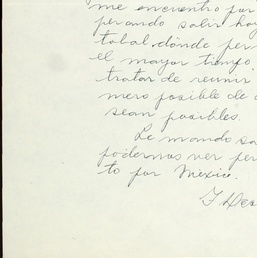 me encuentro por
perando salir hoy
tobal dónde per
el mayor tiempo
tratar de reunir
mero posible de
sean posibles.
Le mando sa
podernos ver
to por México.